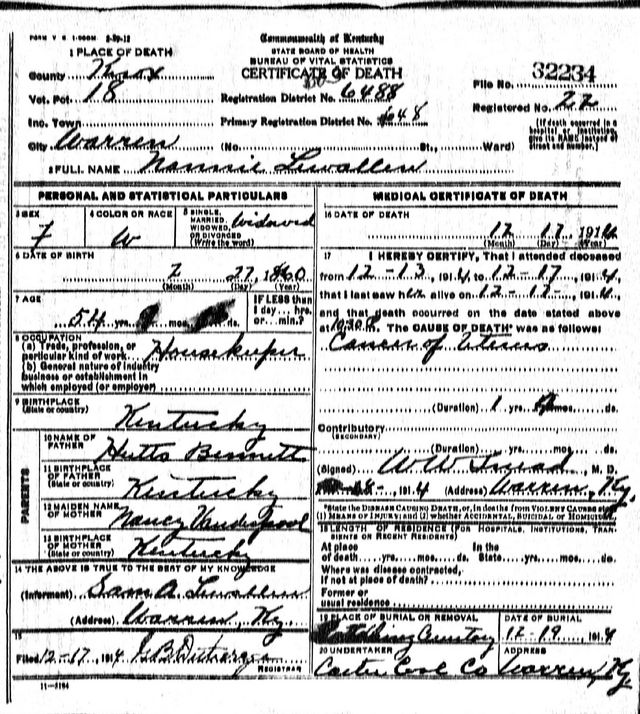 FORM V S 1-500M 2-29-12
Commonwealth of Kentucky
STATE BOARD OF HEALTH
BUREAU OF VITAL STATISTICS
CERTIFICATE OF DEATH
1 PLACE OF DEATH
County Knox
Vot. Pct 18
Inc. Town
City Warren (No. St., Ward)
Registration District No. 6488
Primary Registration District No. 648
File No. 32234
Registered No. 22
(If death occurred in a hospital or institution, give its NAME instead of street and number.)
2 FULL NAME Nannie Lewallen
PERSONAL AND STATISTICAL PARTICULARS
3 SEX
F
4 COLOR OR RACE
W
5 SINGLE, MARRIED, WIDOWED, OR DIVORCED (Write the word)
Widowed
6 DATE OF BIRTH
2 27, 1860
(Month) (Day) (Year)
7 AGE
54 yrs. mos. ds.
IF LESS than 1 day... hrs. or... min.?
8 OCCUPATION
(a) Trade, profession, or particular kind of work Housekeeper
(b) General nature of industry business or establishment in which employed (or employer)
9 BIRTHPLACE
(State or country) Kentucky
PARENTS
10 NAME OF FATHER Bennett
11 BIRTHPLACE OF FATHER (State or country) Kentucky
12 MAIDEN NAME OF MOTHER Nancy Vanderpool
13 BIRTHPLACE OF MOTHER (State or country) Kentucky
14 THE ABOVE IS TRUE TO THE BEST OF MY KNOWLEDGE
(Informant) Sam A. Lewallen
(Address) Warren Ky
15
Filed 12-17, 1914 G B
REGISTRAR
11-5184
MEDICAL CERTIFICATE OF DEATH
16 DATE OF DEATH
12 17, 1914
(Month) (Day) (Year)
17 I HEREBY CERTIFY, That I attended deceased
from 12-13, 1914, to 12-17, 1914,
that I last saw her alive on 12-17-, 1914,
and that death occurred on the date stated above
at 10:30 m. The CAUSE OF DEATH* was as follows:
Cancer of Uterus
(Duration) 1 yrs. mos. ds.
Contributory
(SECONDARY)
(Duration) yrs. mos. ds.
(Signed) W W , M. D.
18-, 1914 (Address) Warren, Ky.
*State the DISEASE CAUSING DEATH, or, in deaths from VIOLENT CAUSES state (1) MEANS OF INJURY; and (2) whether ACCIDENTAL, SUICIDAL or HOMICIDAL.
18 LENGTH OF RESIDENCE (FOR HOSPITALS, INSTITUTIONS, TRANSIENTS OR RECENT RESIDENTS)
At place of death yrs. mos. ds. In the State yrs. mos. ds.
Where was disease contracted, if not at place of death?
Former or usual residence
19 PLACE OF BURIAL OR REMOVAL
DATE OF BURIAL
12-19, 1914
20 UNDERTAKER
Carter Coal Co
ADDRESS
Warren, Ky.